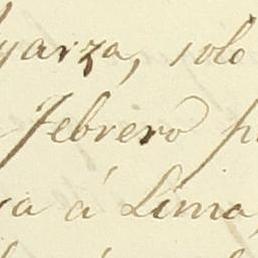 yarza, solo
Febrero p
va á Lima,